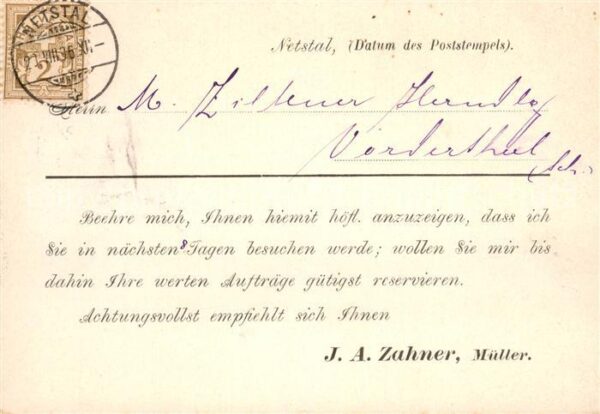 NETSTAL
Netstal, (Datum des Poststempels).
Herrn M. Ziltener Handlg
Vorderthal
(Sch.)
Beehre mich, Ihnen hiemit höfl. anzuzeigen, dass ich
Sie in nächsten 8 Tagen besuchen werde; wollen Sie mir bis
dahin Ihre werten Aufträge gütigst reservieren.
Achtungsvollst empfiehlt sich Ihnen
J. A. Zahner, Müller.